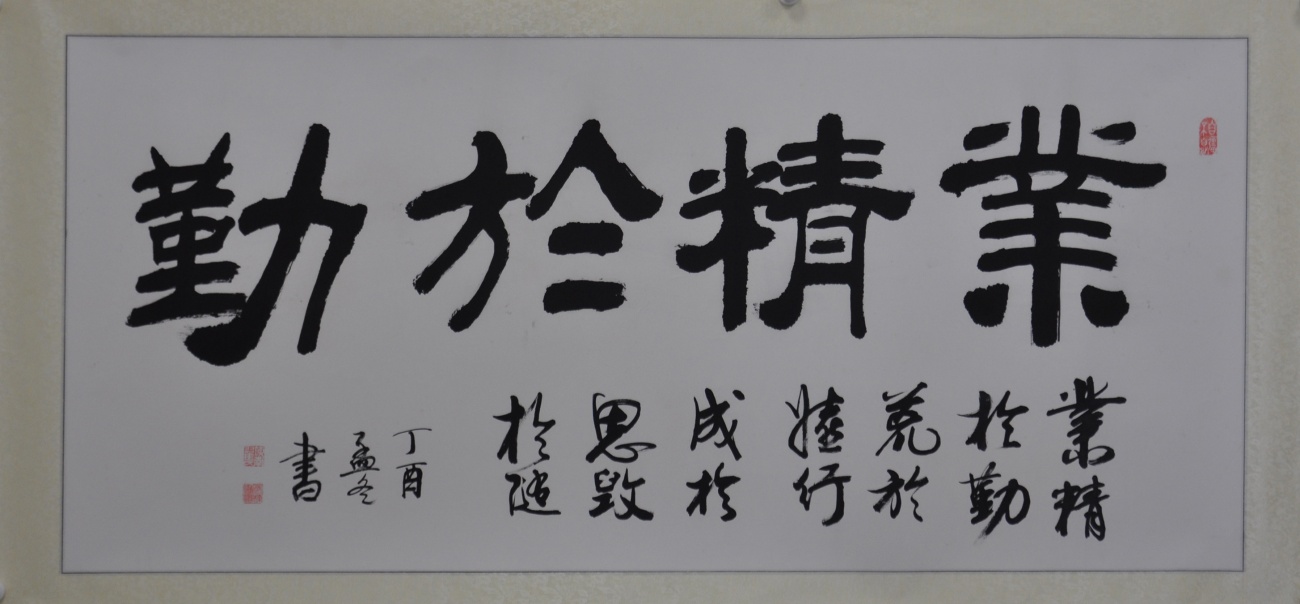 業精於勤
業精
於勤
荒於
嬉行
成於
思毀
於隨
丁酉
孟冬
書